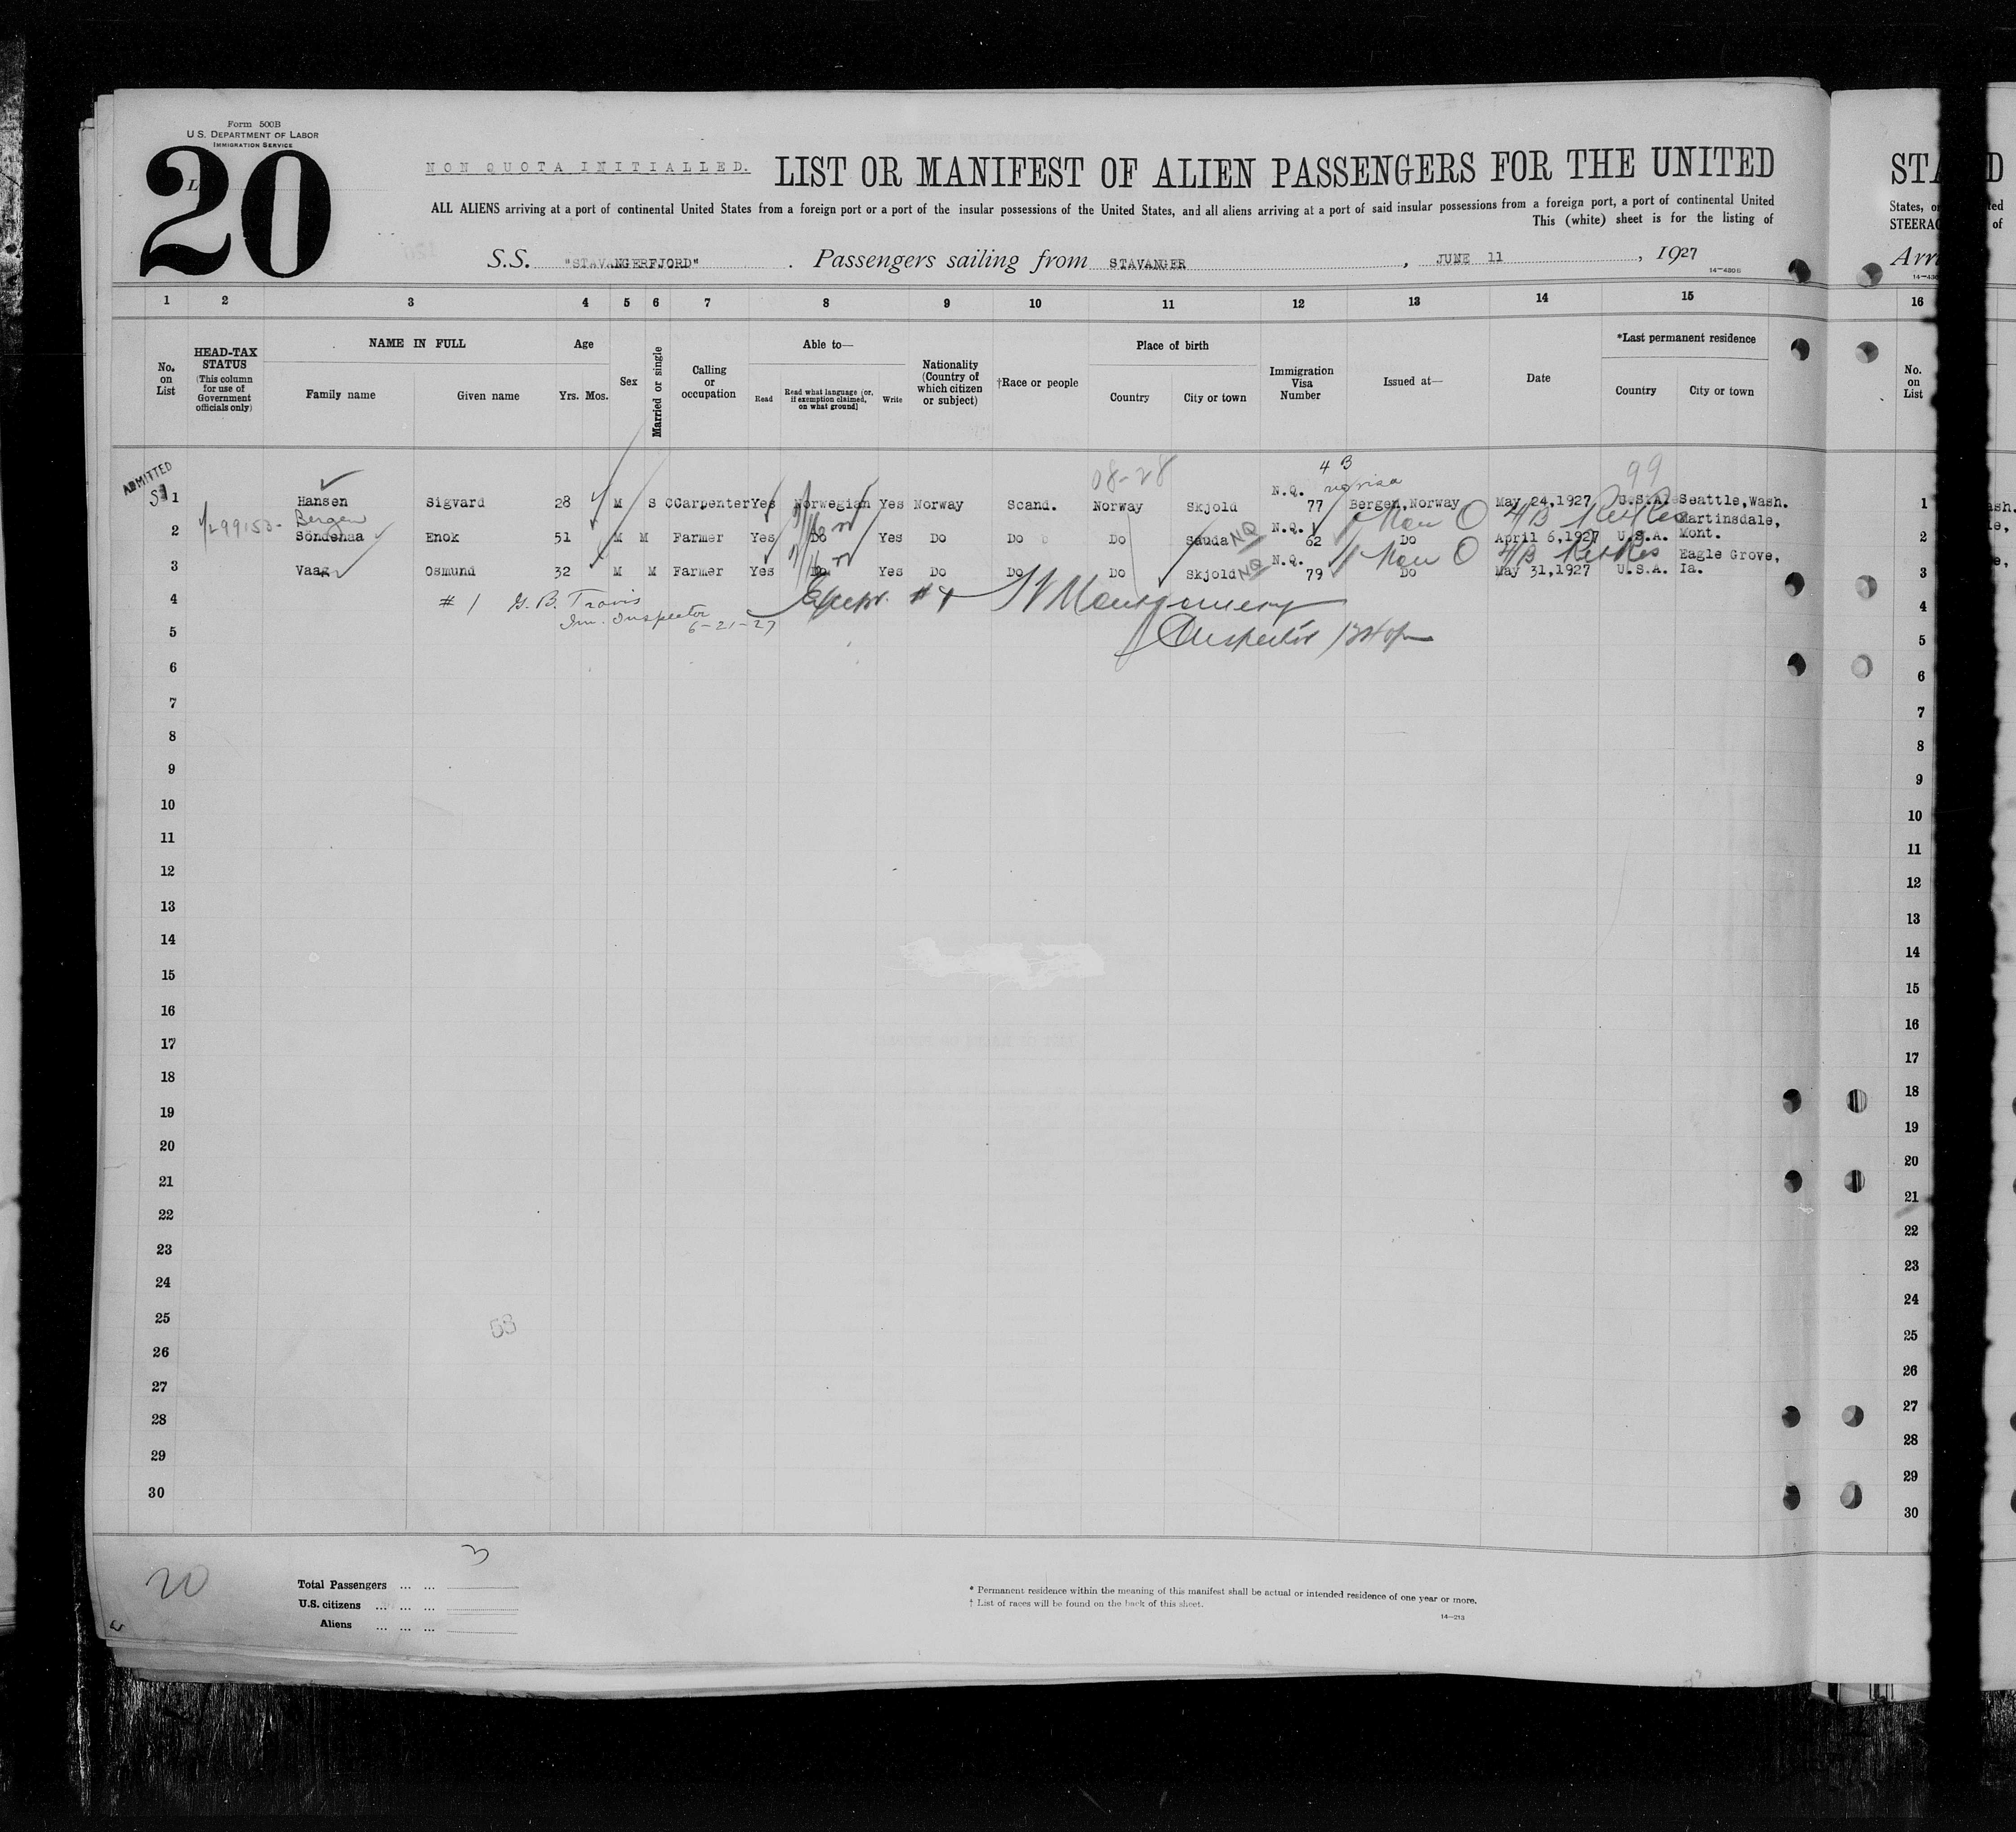 Form 500B
U. S. DEPARTMENT OF LABOR
IMMIGRATION SERVICE
20
NON QUOTA INITIALLED. LIST OR MANIFEST OF ALIEN PASSENGERS FOR THE UNITED
ALL ALIENS arriving at a port of continental United States from a foreign port or a port of the insular possessions of the United States, and all aliens arriving at a port of said insular possessions from a foreign port, a port of continental United
This (white) sheet is for the listing of
S.S. "STAVANGERFJORD" . Passengers sailing from STAVANGER , JUNE 11 , 1927
14—4306
1 2 3 4 5 6 7 8 9 10 11 12 13 14 15 16
No. on List
HEAD-TAX STATUS (This column for use of Government officials only)
NAME IN FULL
Family name Given name
Age
Yrs. Mos.
Sex
Married or single
Calling or occupation
Able to—
Read
Read what language (or, if exemption claimed, on what ground)
Write
Nationality (Country of which citizen or subject)
†Race or people
Place of birth
Country City or town
Immigration Visa Number
Issued at—
Date
*Last permanent residence
Country City or town
No. on List
ADMITTED
08-28 4 B 99
1 Hansen Sigvard 28 M S CCarpenter Yes Norwegian Yes Norway Scand. Norway Skjold N.Q. 77 Bergen, Norway May 24, 1927 U.S.A. Seattle, Wash. 1
Bergen
2 Söndenaa Enok 51 M M Farmer Yes Do Yes Do Do Do Sauda NQ N.Q. 62 Do April 6, 1927 U.S.A. Martinsdale, Mont. 2
3 Vaag Osmund 32 M M Farmer Yes Do Yes Do Do Do Skjold NQ N.Q. 79 Do May 31, 1927 U.S.A. Eagle Grove, Ia. 3
4 # 1 G. B. Travis Montgomery 4
Im. Inspector
6-21-27
5 Inspector 5
6 6
7 7
8 8
9 9
10 10
11 11
12 12
13 13
14 14
15 15
16 16
17 17
18 18
19 19
20 20
21 21
22 22
23 23
24 24
25 58 25
26 26
27 27
28 28
29 29
30 30
20
3
Total Passengers ... ...
U.S. citizens ... ... ...
Aliens ... ... ...
* Permanent residence within the meaning of this manifest shall be actual or intended residence of one year or more.
† List of races will be found on the back of this sheet.
14—213